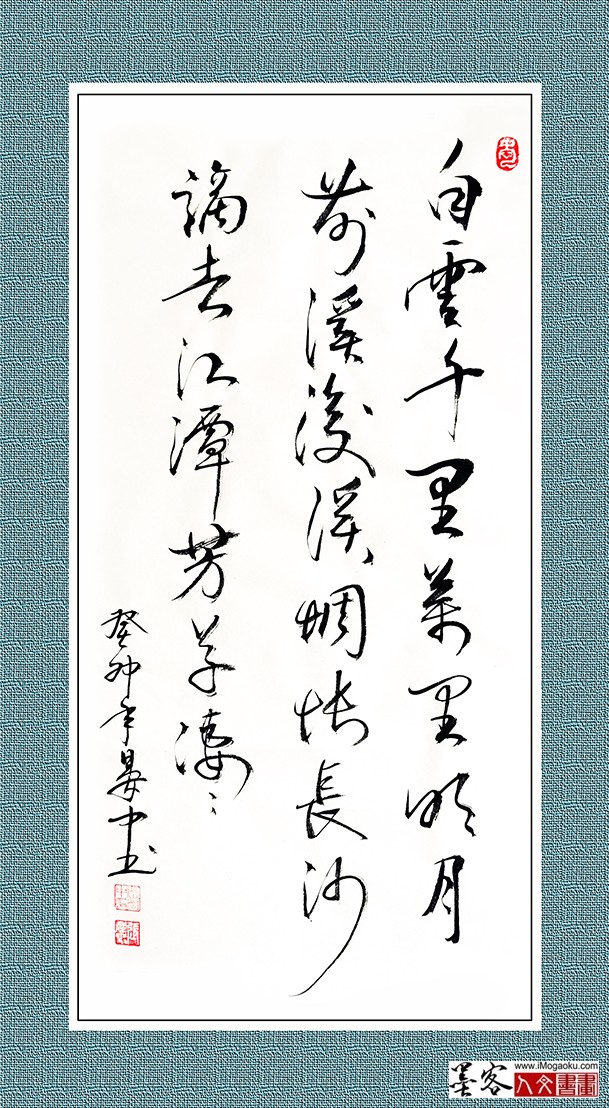 白雲千里萬里明月
前溪後溪惆悵長沙
謫去江潭芳草淒〻
癸卯年晏中书
墨客
www.iMogaoku.com
人文書畫